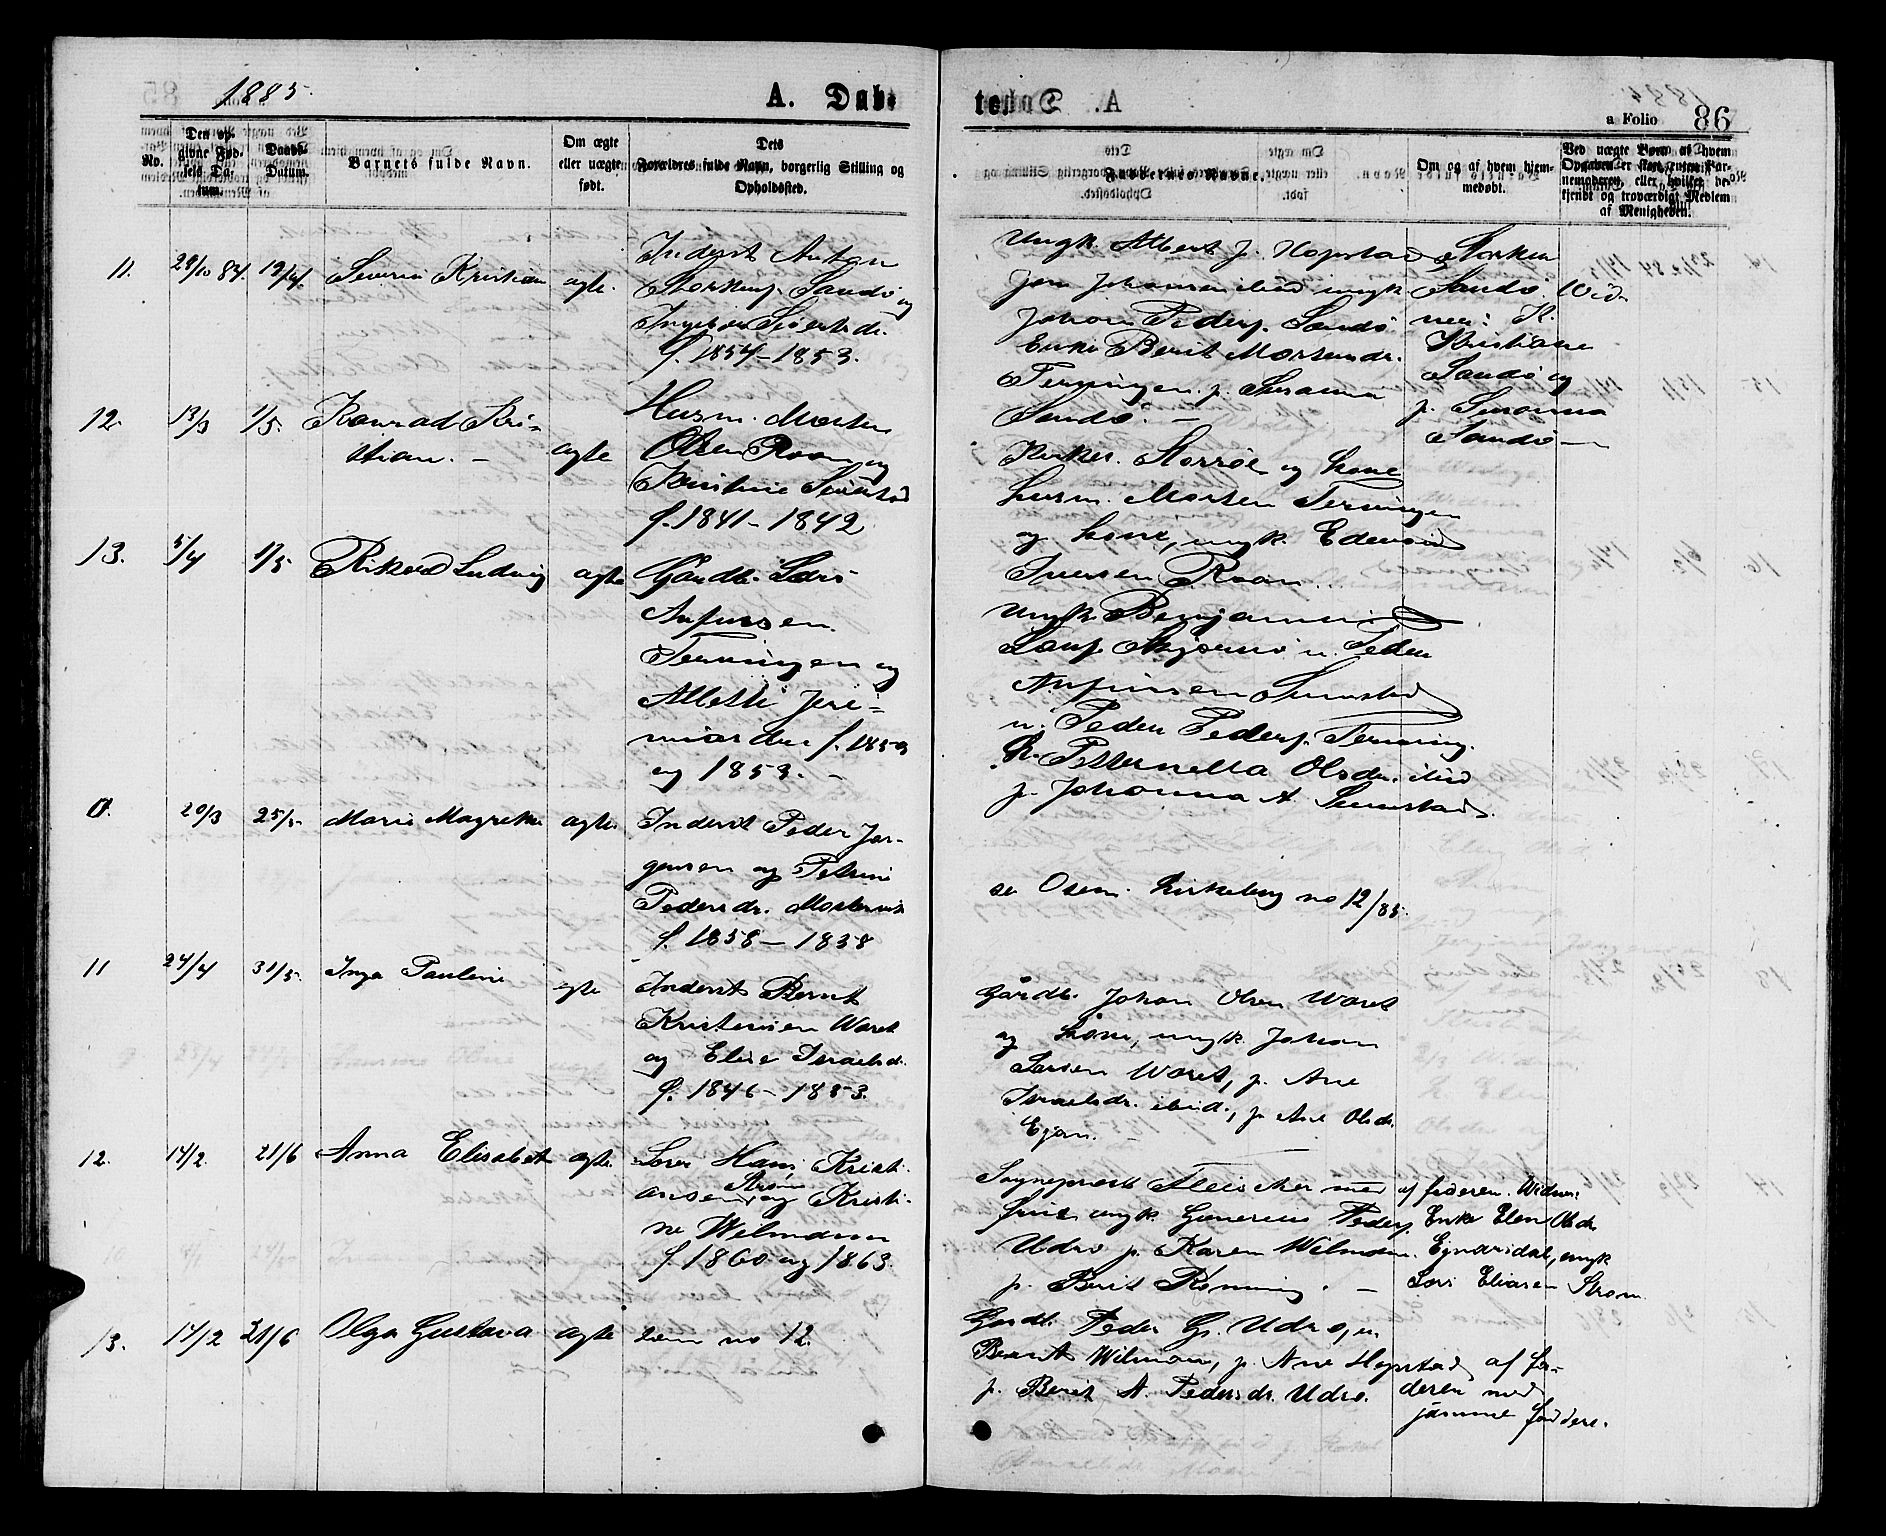 1885.
A. Døb
te.
A.
a Folio 86
No.
Den opgivne Fødsels Datum.
Daabs-Datum.
Barnets fulde Navn.
Om ægte eller uægte født.
Dets Forældres fulde Navn, borgerlig Stilling og Opholdssted.
Faddernes Navne.
Om og af hvem hjemmedøbt.
Ved uægte Børn af hvem Opgaven er skeet, enten Barnemoderen, eller hvilket bekjendt og troværdigt Medlem af Menigheden.
11. 29/10 84. 19/4. Severin Kristian ægte.
Inderst Anton
Storkers. Sandø og
Ingeborg Siversdr.
f. 1854 - 1853.
Ungk. Albert J. Hopstad
Jon Johansen ibid ungk
Johan Peders. Sandø
Enke Berit Mortensdr.
Terningen p. Susanna
Sandø. -
Storker
Sandø Vid-
ner: K.
Kristiane
Sandø og
p. Susanna
Sandø -
12. 13/3 1/5. Konrad Kri-
stian. - ægte
Husm. Morten
Olsen Roan og
f. 1841 - 1842
Kirkes. Storrøe og kone
husm. Morten Terningen
og kone, ungk. Edevard
Iversen Roan.
13. 5/4 1/5 Rikard Ludvig ægte
Gårdb. Lars
Anfinsen
Terningen og
Alette Jeri-
miasdr f. 1859
og 1853. -
Ungk. Benjamin
Lars. Skjærvø u. Peder
Anfinsen Sumstad
u. Peder Peders. Terning.
k. Petternella Olsdr. ibid
p. Johanna A. Sumstad.
0. 20/3 25/5. Marie Magrethe ægte
Inderst Peder Jør-
gensen og Petrine
Pedersdr. Mortensvik
f. 1858 - 1858
se Osen. kirkebog no 12/85.
11 24/4 31/5. Inga Pauline ægte
Inderst Bernt
Kristensen Waret
og Elise Israelsd.
f. 1846 - 1853.
Gårdb. Johan Olsen Waret
og kone, ungk. Johan
Larsen Waret, p. Ane
Israelsdr. ibid., p. Ane Olsdr.
12. 14/2. 21/6 Anna Elisabet ægte
Lærer Hans Kristi-
ansen Strøm og Kristi-
ne Wilmann
f. 1860 og 1863.
Sogneprest Fleischer med
frue ungk. Gunerius Peders
Udrø p. Karen Wilmann.
p. Berit Rønning. -
af faderen. Widner:
Enke Elen Olsdr
Ejnarsdal, ungk
Lars Eliasen Strøm
13. 14/2 21/6 Olga Gustava ægte som no 12.
Gårdb. Peder G. Udrø, u.
Bernt Wilmann, p. Ane Hopstad
p. Berit A. Pedersdr. Udrø.
af fa-
deren med
samme faddere.